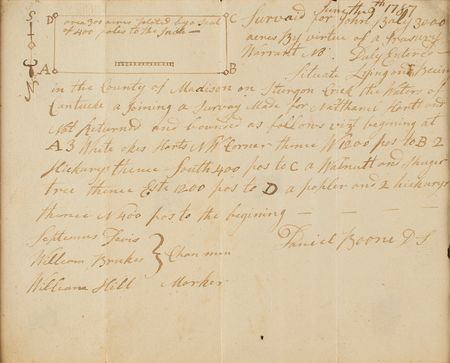 June the 9th 1787
D area 3000 acres
of 400 poles to the Inch
C
S
N
A
B
Survaid for John Ball 3000
acres By virtue of a Treasury
Warrant No. Duly Entered
Situate Lying and Being
in the County of Madison on Sturgon Crick the Waters of
Cantucke a Joining a Survay Made for Nathanel Hartt and
Not Returned and bounded as follows viz begening at
A 3 White okes Harts NW Corner thence W 1200 pos to B 2
Hickurys thence South 400 pos to C a Walnutt and Shuger
tree thence Este 1200 pos to D a popler and 2 hickurys
thence N 400 pos to the begining
Septemus Davis
William Brukes } Chan min
Daniel Boone D S
William Hill Marker